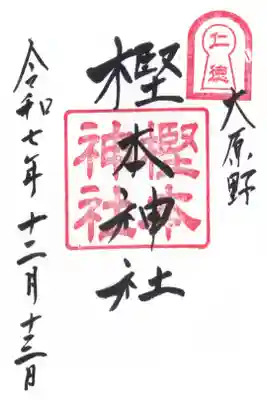 仁徳
大原野
樫本神社
樫本神社
令和七年十二月十三日